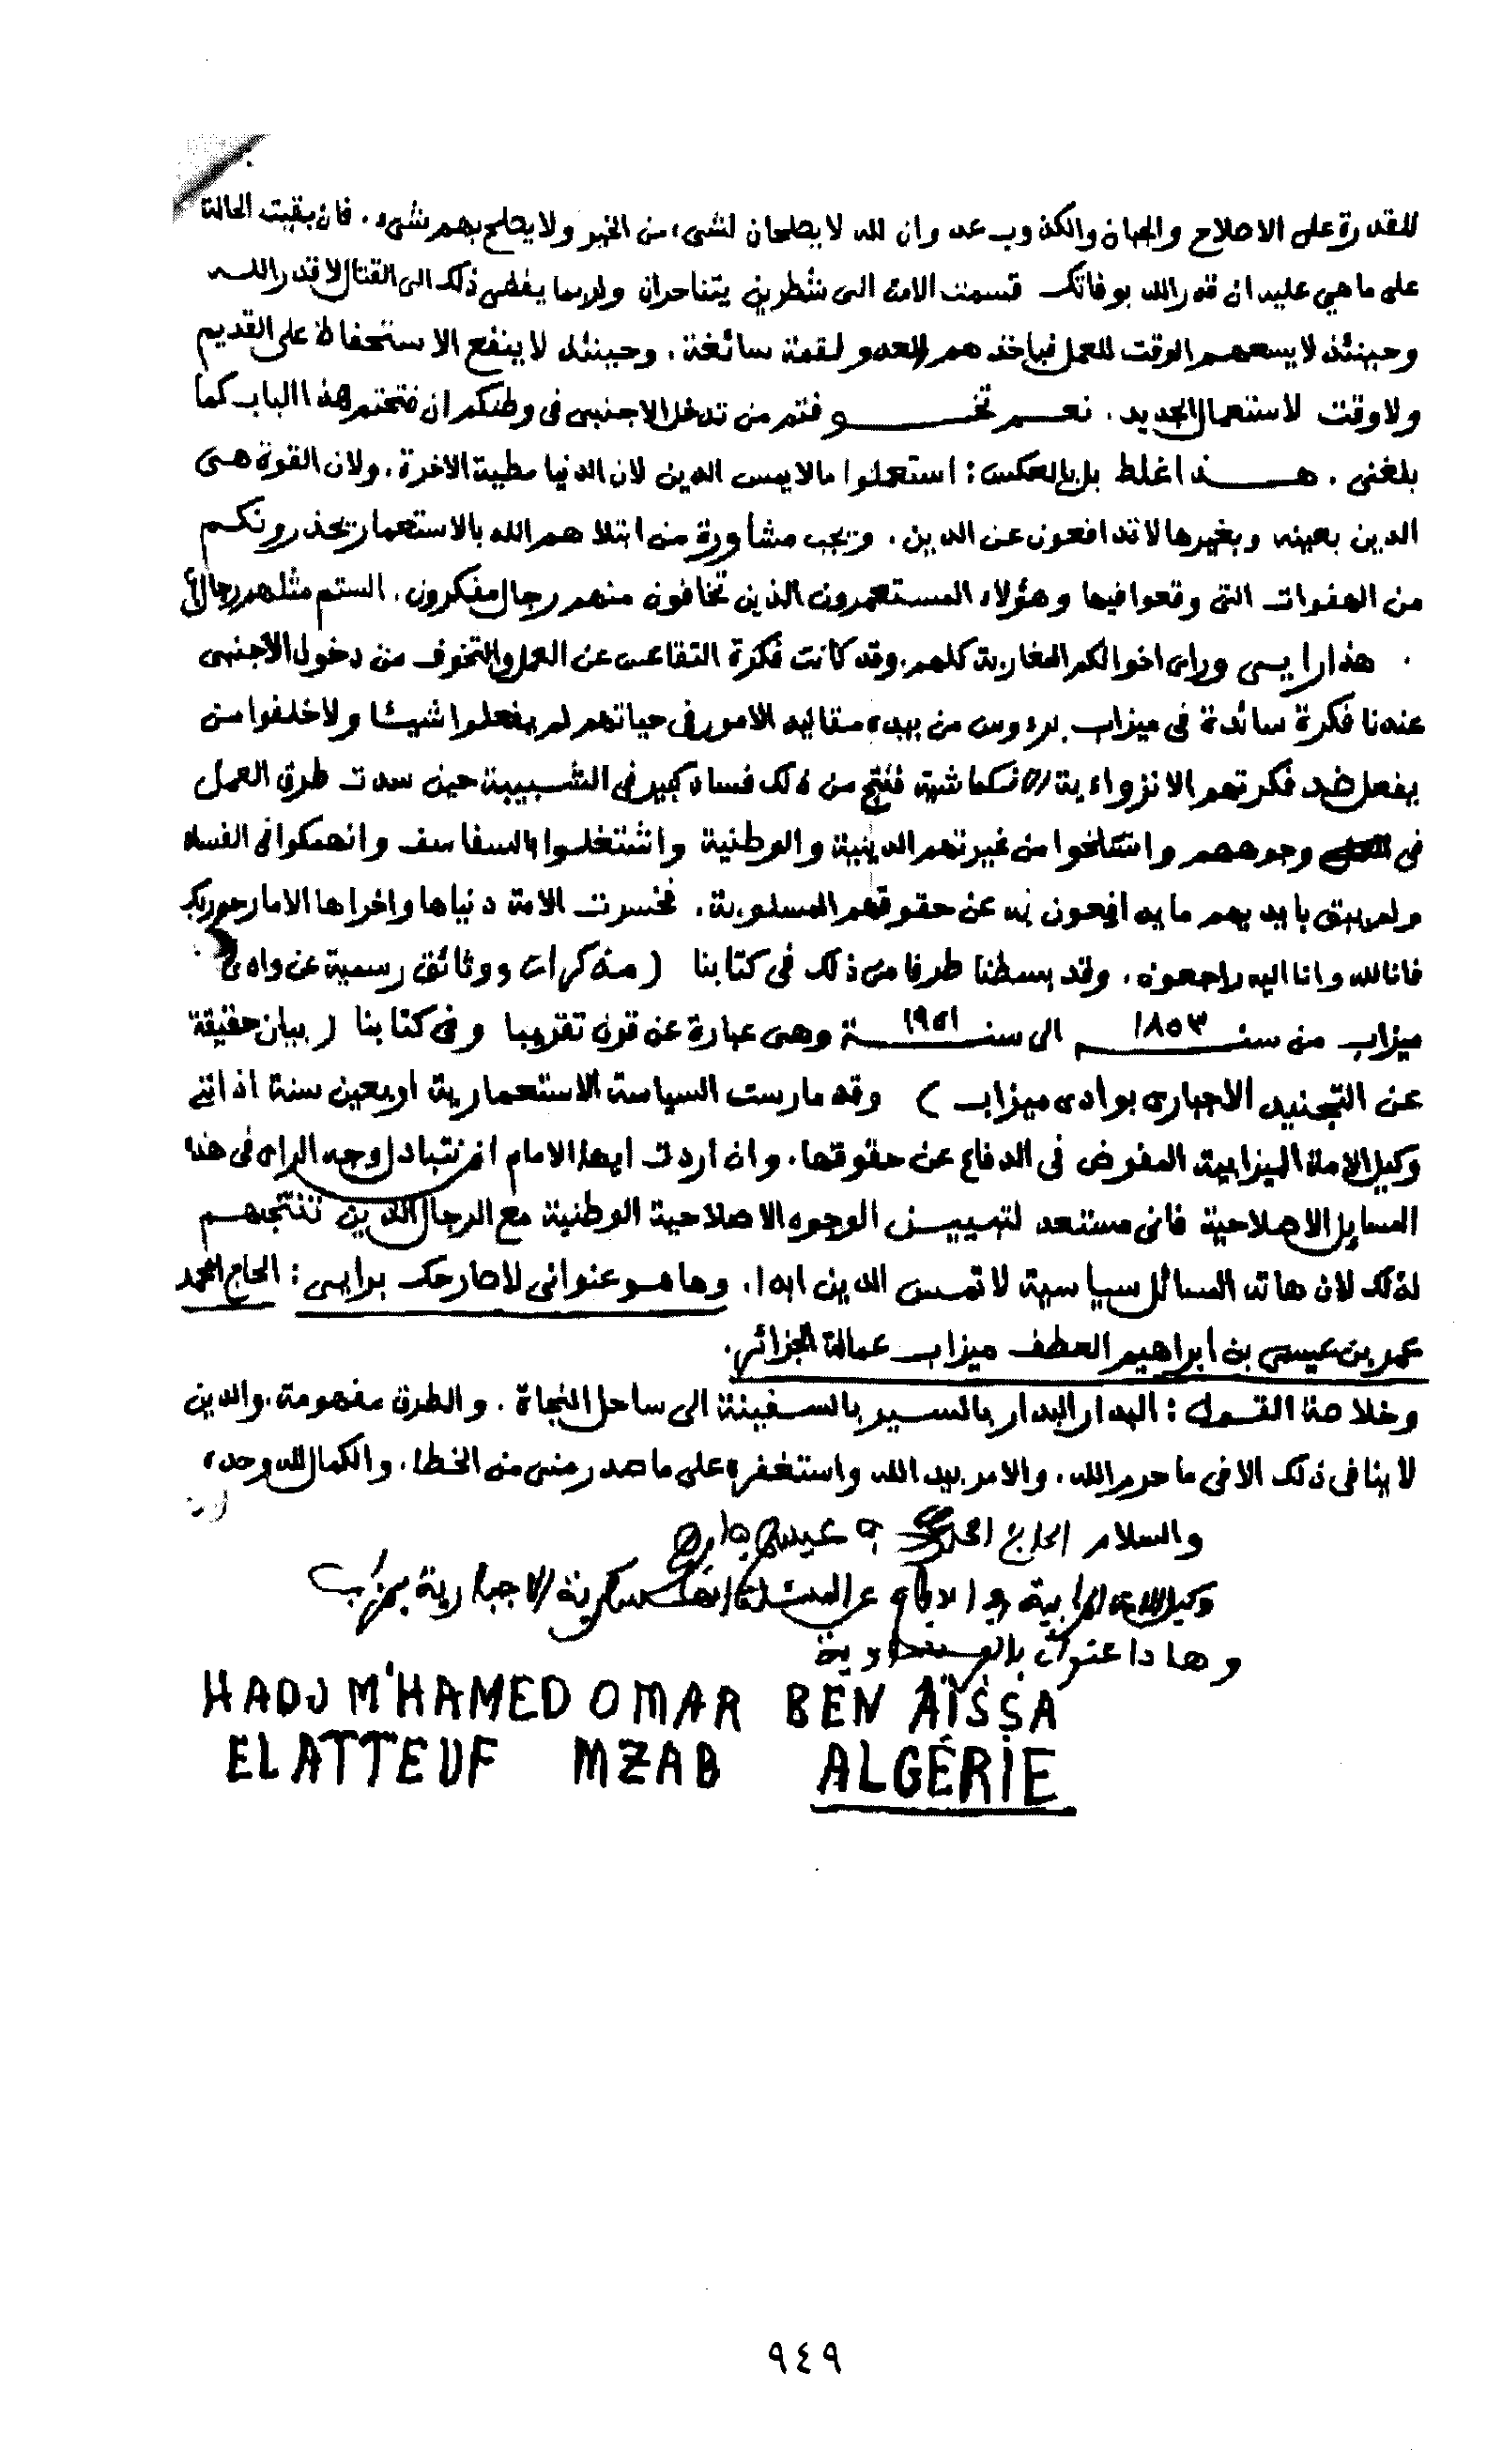 للقدرة على الاصلاح والجبان والكذوب عدوان لله لا يصلحان لشيء من الخير ولا يصلح بهم شيء . فان بقيت الحالة
على ما هي عليه ان قدر الله بوفاتك قسمت الامة الى شطرين يتناحران ولربما يفضي ذلك الى القتال لا قدر اللــه
وحينئذ لا يسعهم الوقت للعمل فياخذهم العدو لقمة سائغة . وحينئذ لا ينفع الاستحفاظ على القديم
ولا وقت لاستعمال الجديد . نعــم تخــوفتم من تدخل الاجنبي في وطنكم ان فتحتم هذا الباب كما
بلغني . هــذا غلط بل بالعكس : استعملوا ما لا يمس الدين لان الدنيا مطية الاخرة . ولان القوة هــي
الدين بعينه وبغيرها لا تدافعون عن الدين . وتجب مشاورة من ابتلاهم الله بالاستعمار يحذرونكــم
من الهفوات التي وقعوا فيها وهؤلاء المستعمرون الذين تخافون منهم رجال مفكرون . الستم مثلهم رجالا
. هذا رايــي وراي اخوالكم المغاربة كلهم . وقد كانت فكرة التقاعس عن العمل والتخوف من دخول الاجنبي
عندنا فكرة سائدة في ميزاب برءوس من بيده مقاليد الامور في حياتهم لم يفعلوا شيئا ولا خلفوا من
يفعل ضد فكرتهم الانزواءية الانكماشية فنتج من ذلك فساد كبير في الشــبيبة حين سدت طرق العمل
في وجوههم وانسلخوا من غيرتهم الدينية والوطنية واشتغلــوا بالسفاسف وانهمكوا في الفساد
ولم يبق بايديهم ما يدافعون به عن حقوقهم المسلوبة . فخسرت الامة دنياها واخراها الا ما رحم ربك
فانا لله وانا اليه راجعون . وقد بسطنا طرفا من ذلك في كتابنا ( مذكرات ووثائق رسمية عن وادي
ميزاب من سنــة ١٨٥٣ الى سنــة ١٩٥١ وهي عبارة عن قرن تقريبا وفي كتابنا ( بيان حقيقة
عن التجنيد الاجباري بوادي ميزاب ) وقد مارست السياسة الاستعمارية اربعين سنة اذ انني
وكيل الامة الميزابية المفوض في الدفاع عن حقوقها . وان اردت ايها الامام ان نتبادل وجه الراي في هذه
المسايل الاصلاحية فاني مستعد لتبييــن الوجوه الاصلاحية الوطنية مع الرجال الذين تنتجهــم
لذلك لان هاته المسائل سياسية لا تمــس الدين ابدا . وها هــو عنواني لاصارحك برايــي : الحاج امحمد
عمر بن عيسى بن ابراهيم العطف ميزاب عمالة الجزائر .
وخلاصة القــول : البدار البدار بالســير بالســفينة الى ساحل النجاة . والطرق مفهومة . والدين
لا ينافي ذلك الا في ما حرم الله . والامر بيد الله واستغفره على ما صدر مني من الخطا . والكمال لله وحده
والسلام الحاج امحمد عمر بن عيسى
وكيل الامة الميزابية في الدفاع عن المسئلة العسكرية الاجبارية بميزاب
وهاذا عنواني بالفرنساوية
HADJ M'HAMED OMAR BEN AÏSSA
EL ATTEUF MZAB ALGÉRIE
٩٤٩